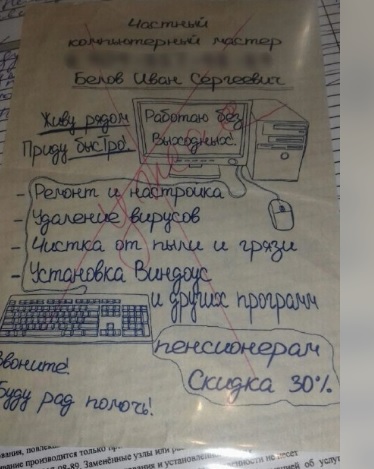 Частный
компьютерный мастер
Белов Иван Сергеевич
Живу рядом
Приду быстро!
Работаю без
Выходных!
- Ремонт и настройка
- Удаление вирусов
- Чистка от пыли и грязи
- Установка Виндоус
и других программ
пенсионерам
Скидка 30%
Звоните!
Буду рад помочь!
производится только
08-89. Заменённые узлы или
и установленн
не несет
об услуг